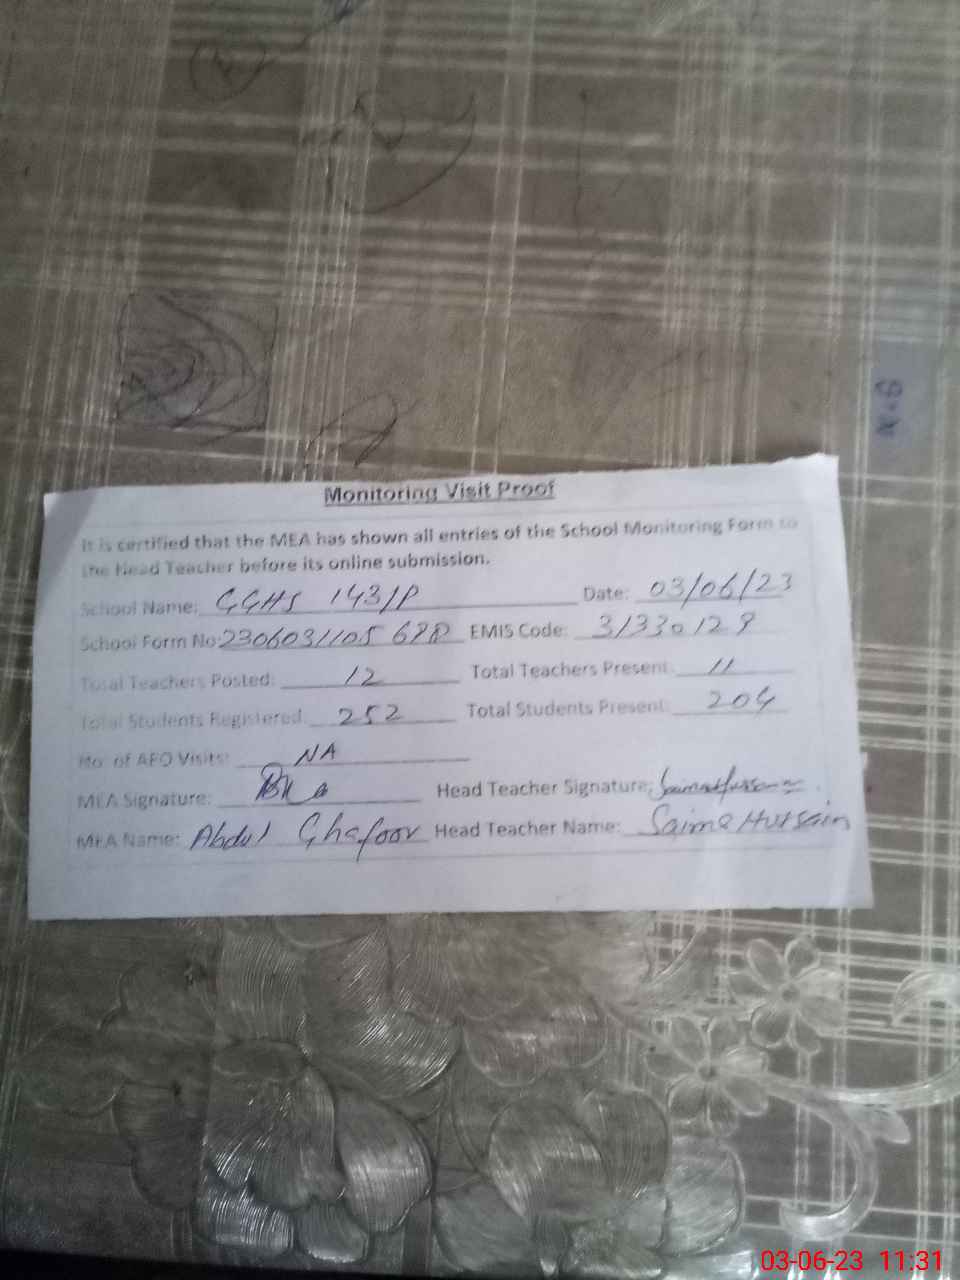 Monitoring Visit Proof
It is certified that the MEA has shown all entries of the School Monitoring Form to
the Head Teacher before its online submission.
School Name: GGHS 143/P Date: 03/06/23
School Form No: 2306031105 EMIS Code: 31330129
Total Teachers Posted: 12 Total Teachers Present: 11
Total Students Registered: 252 Total Students Present: 204
No. of AEO Visits: NA
MEA Signature: Head Teacher Signature: Saima Hussain
MEA Name: Abdul Ghafoor Head Teacher Name: Saima Hussain
03-06-23 11:31